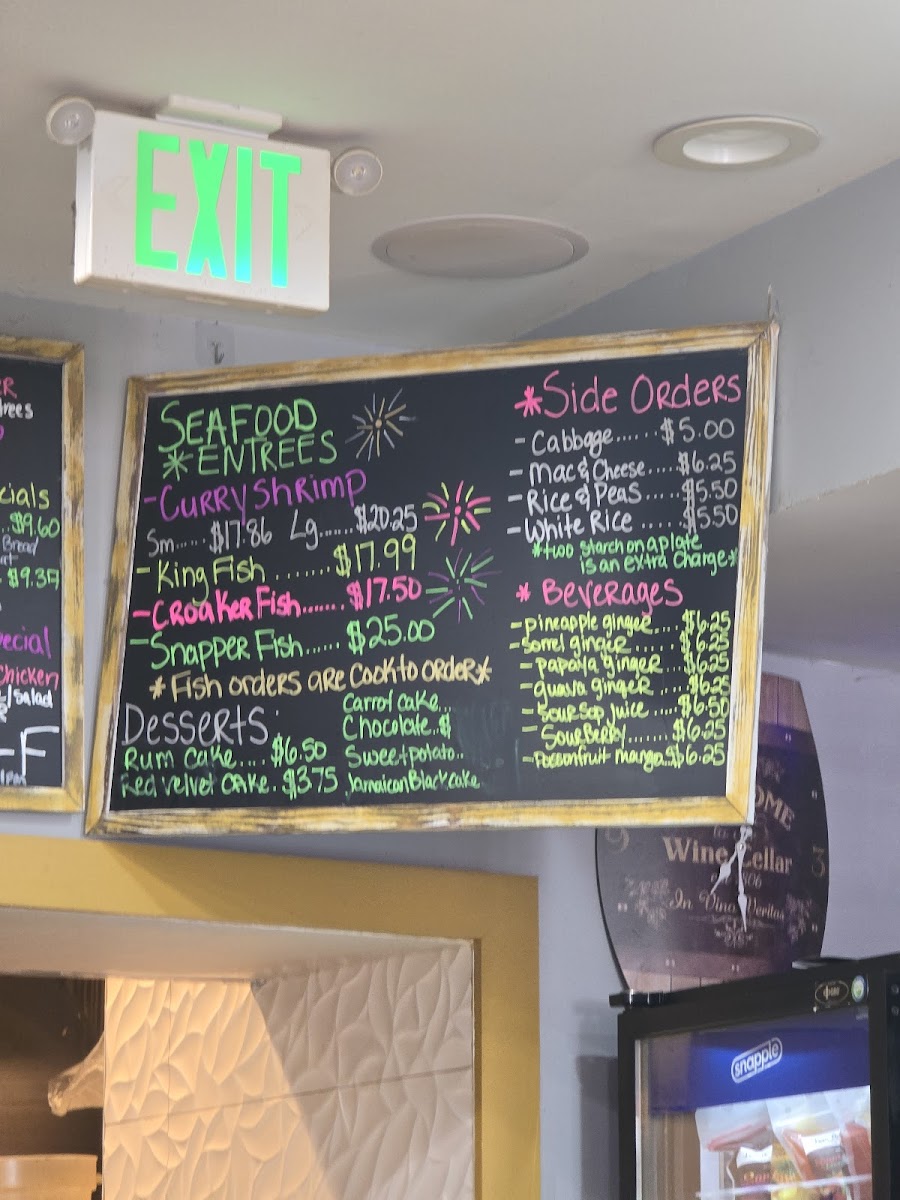 EXIT
trees
cials
$9.60
Bread
$9.37
ecial
Chicken
/Salad
-F
SEAFOOD
*ENTREES
-Curry Shrimp
Sm..... $17.86 Lg......$20.25
-King Fish ....... $17.99
-Croaker Fish...... $17.50
-Snapper Fish...... $25.00
*Fish orders are cook to order*
Desserts
Rum cake.... $6.50
Red velvet cake. $3.75
Carrot cake...
Chocolate..$
Sweet potato..
Jamaican Black cake
*Side Orders
-Cabbage...... $5.00
-Mac & Cheese....$6.25
-Rice & Peas .....$5.50
-White Rice ......$5.50
*two starch on a plate
is an extra charge*
* Beverages
-pineapple ginger.... $6.25
-Sorrel ginger ..... $6.25
-papaya ginger ....$6.25
-guava ginger ....$6.25
-Soursop juice ....$6.50
-Sour Berry.......$6.25
-Passonfruit mango.$6.25
OME
Wine Cellar
In Vino Veritas
9
3
snapple